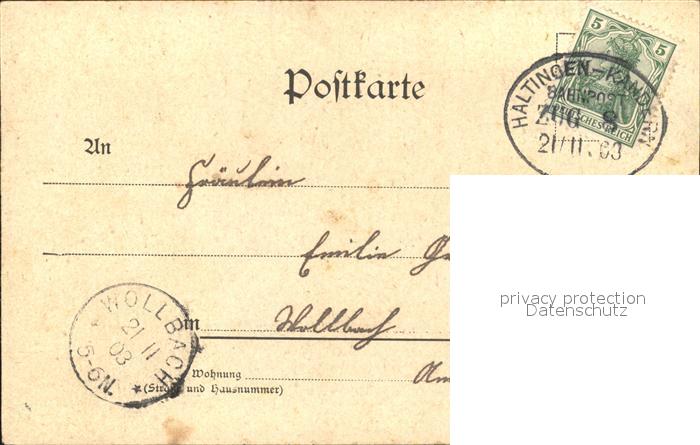 Postkarte
5 5
HALTINGEN-KANDERN
BAHNPOST
ZUG 8
DEUTSCHES REICH
21/11.03
An
Fräulein
Emilie
in Wollbach
WOLLBACH
21 11
03
5-6N.
Wohnung
(Straße und Hausnummer)
privacy protection
Datenschutz